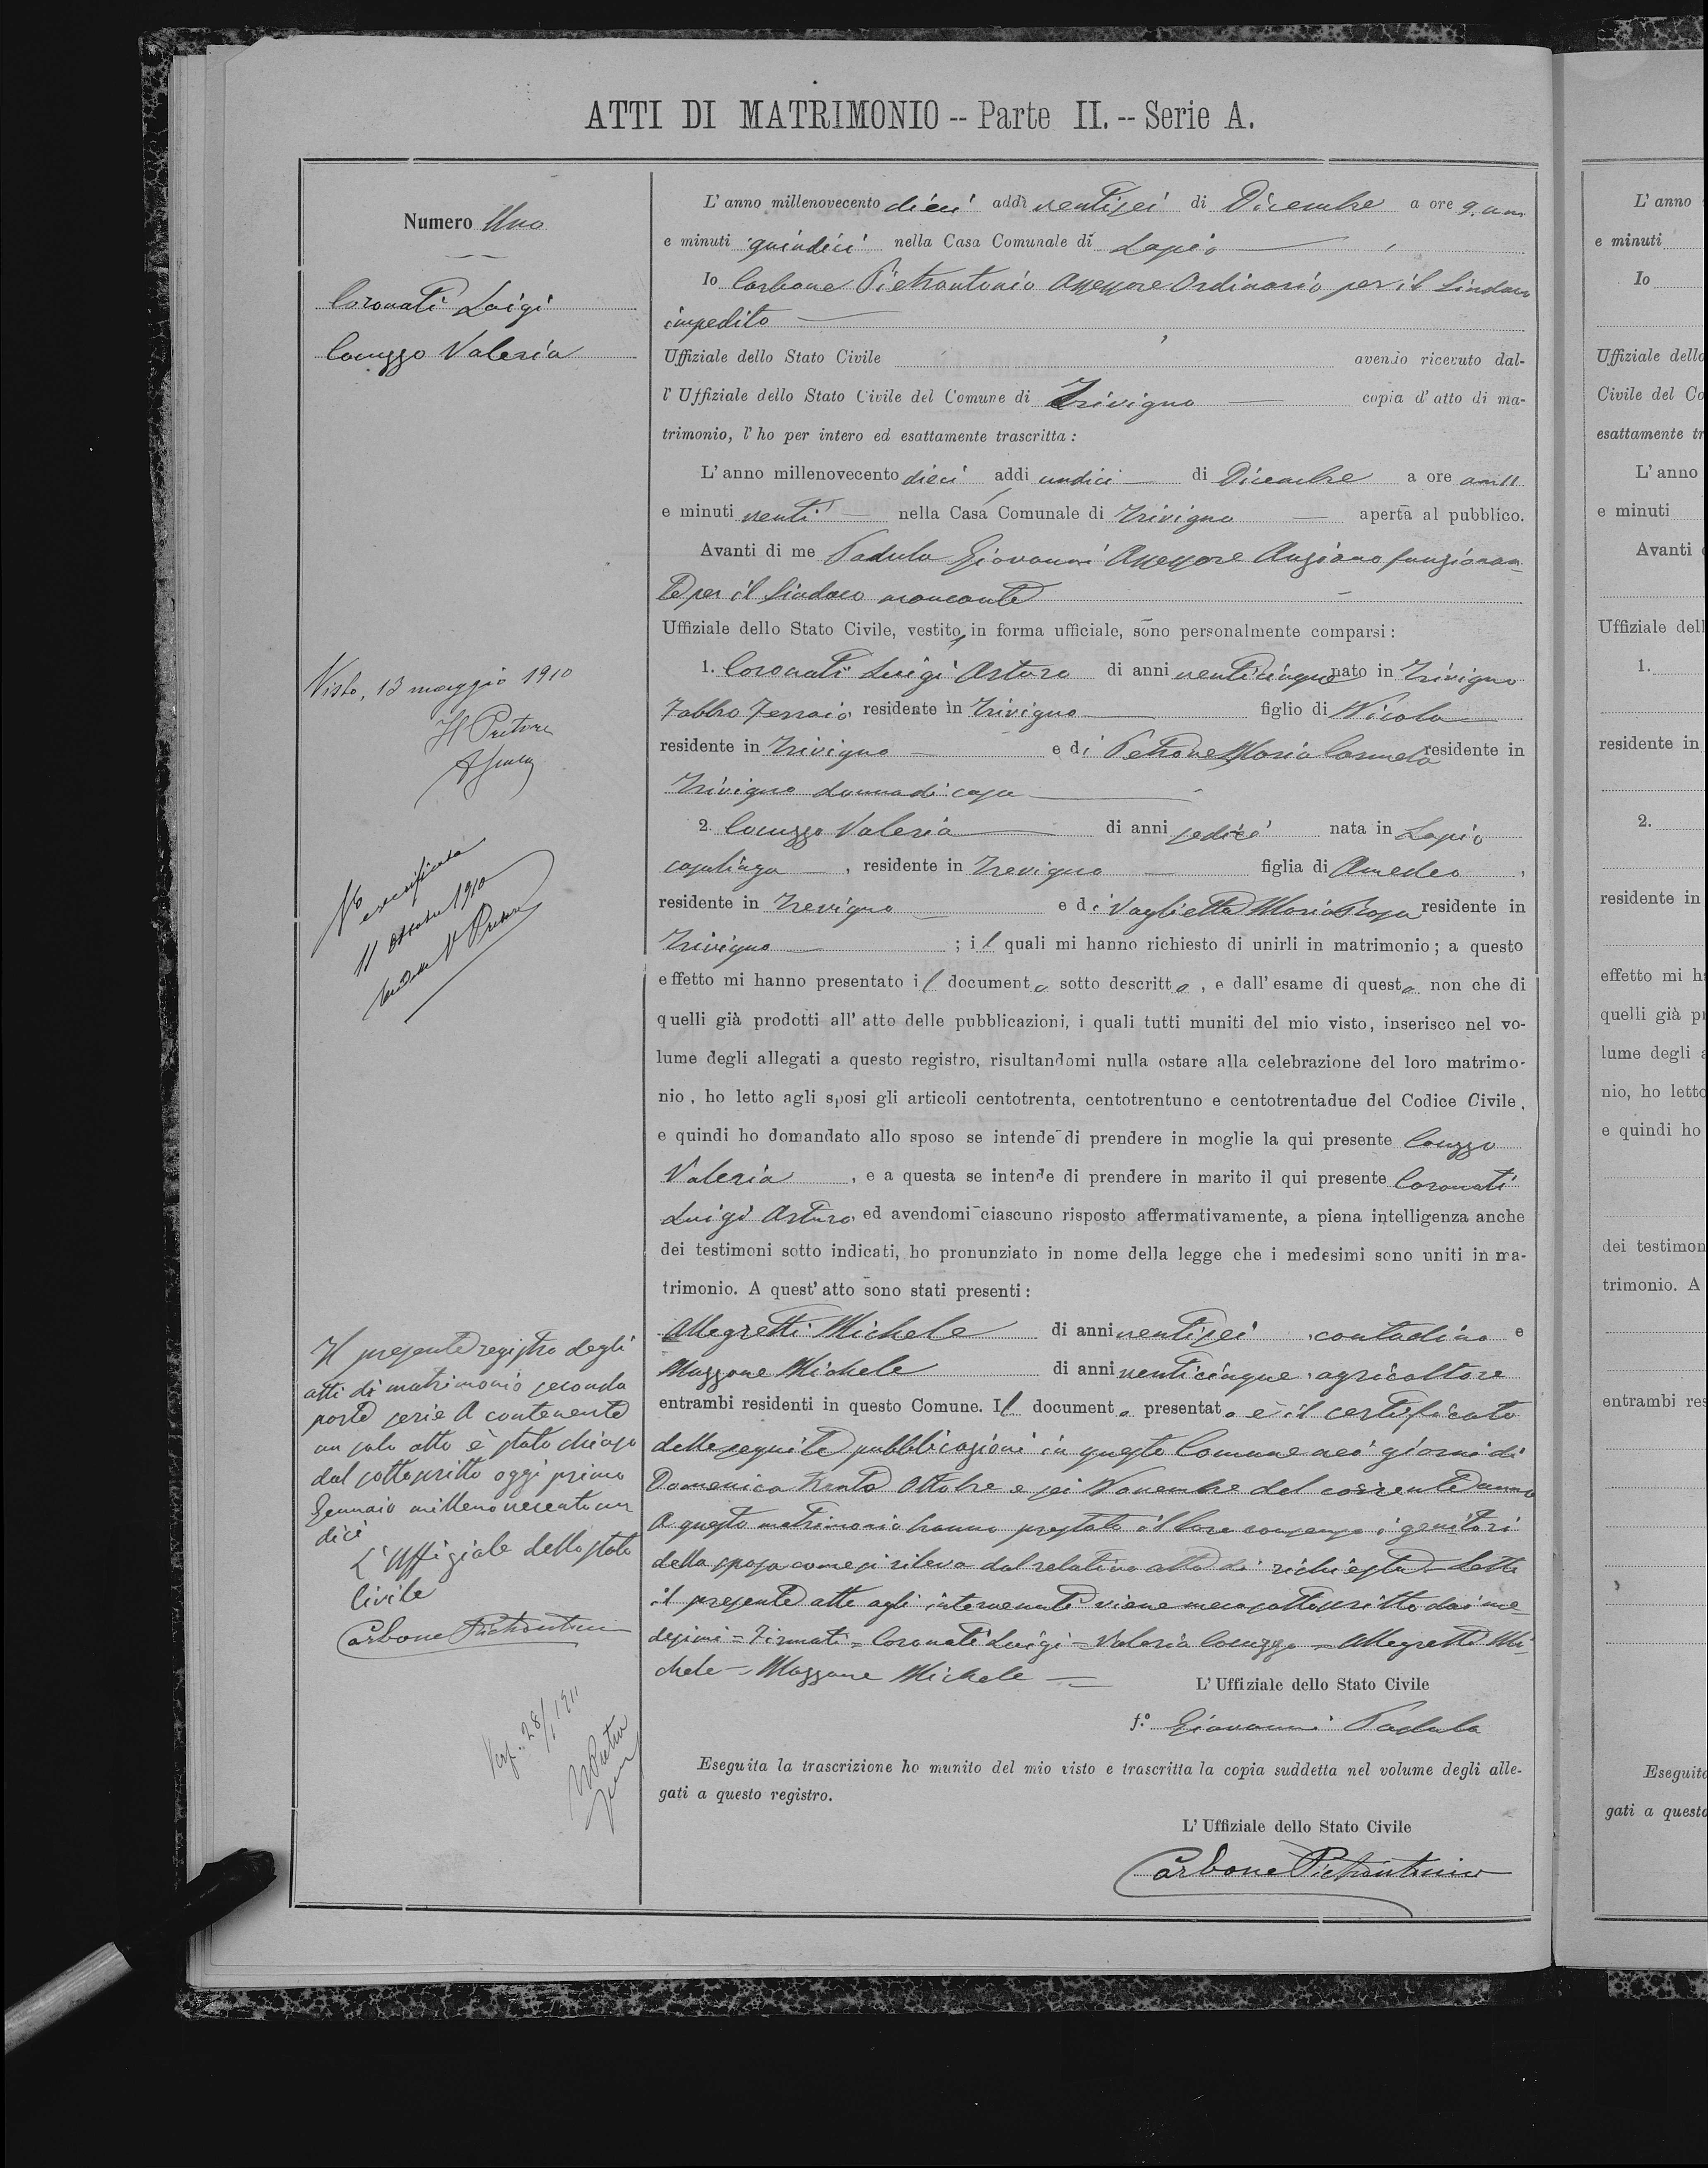 ATTI DI MATRIMONIO -- Parte II. -- Serie A.
Numero Uno
Coronati Luigi
Cocuzzo Valeria
Visto, 13 maggio 1910
Il Pretore
Verificato
11 Ottobre 1910
Il Pretore
Il presente registro degli
atti di matrimonio seconda
parte serie A contenente
un solo atto è stato chiuso
dal sottoscritto oggi primo
Gennaio millenovecentoun
dici
L'Uffiziale dello Stato
Civile
Carbone Pietrantonio
Ver. 28/1 1911
Il Pretore
L'anno millenovecento dieci addì ventisei di Dicembre a ore 9. am
e minuti quindici nella Casa Comunale di Lapio
Io Carbone Pietrantonio Assessore Ordinario per il Sindaco
impedito
Uffiziale dello Stato Civile avendo ricevuto dal-
l'Uffiziale dello Stato Civile del Comune di Trivigno copia d'atto di ma-
trimonio, l'ho per intero ed esattamente trascritta:
L'anno millenovecento dieci addi undici di Dicembre a ore am 11
e minuti venti nella Casa Comunale di Trivigno aperta al pubblico.
Avanti di me Padula Giovanni Assessore Anziano funzionan-
te per il Sindaco mancante
Uffiziale dello Stato Civile, vestito in forma ufficiale, sono personalmente comparsi:
1. Coronati Luigi Arturo di anni venticinque nato in Trivigno
Fabbro Ferraio residente in Trivigno figlio di Nicola
residente in Trivigno e di Petrone Maria Carmela residente in
Trivigno donna di casa
2. Cocuzzo Valeria di anni sedici nata in Lapio
casalinga, residente in Trevigno figlia di Amedeo,
residente in Trevigno e di Vaglietta Maria Rosa residente in
Trivigno; il quali mi hanno richiesto di unirli in matrimonio; a questo
effetto mi hanno presentato il documento sotto descritto, e dall'esame di questo non che di
quelli già prodotti all'atto delle pubblicazioni, i quali tutti muniti del mio visto, inserisco nel vo-
lume degli allegati a questo registro, risultandomi nulla ostare alla celebrazione del loro matrimo-
nio, ho letto agli sposi gli articoli centotrenta, centotrentuno e centotrentadue del Codice Civile,
e quindi ho domandato allo sposo se intende di prendere in moglie la qui presente Cocuzzo
Valeria, e a questa se intende di prendere in marito il qui presente Coronati
Luigi Arturo ed avendomi ciascuno risposto affermativamente, a piena intelligenza anche
dei testimoni sotto indicati, ho pronunziato in nome della legge che i medesimi sono uniti in ma-
trimonio. A quest'atto sono stati presenti:
Allegretti Michele di anni ventisei, contadino e
Mazzone Michele di anni venticinque, agricoltore
entrambi residenti in questo Comune. Il documento presentato è il certificato
delle seguite pubblicazioni in questo Comune nei giorni di
Domenica trenta Ottobre e sei Novembre del corrente anno
A questo matrimonio hanno prestato il loro consenso i genitori
della sposa come si rileva dal relativo atto di richiesta. Letto
il presente atto agli intervenuti viene meco sottoscritto dai me-
desimi = Firmati = Coronati Luigi = Valeria Cocuzzo = Allegretti Mi-
chele = Mazzone Michele =
L'Uffiziale dello Stato Civile
f.º Giovanni Padula
Eseguita la trascrizione ho munito del mio visto e trascritta la copia suddetta nel volume degli alle-
gati a questo registro.
L'Uffiziale dello Stato Civile
Carbone Pietrantonio
L'anno
e minuti
Io
Uffiziale dello
Civile del Co
esattamente tr
L'anno
e minuti
Avanti
Uffiziale dell
1.
residente in
2.
residente in
effetto mi h
quelli già pr
lume degli a
nio, ho letto
e quindi ho
dei testimon
trimonio. A
entrambi res
Eseguita
gati a questo